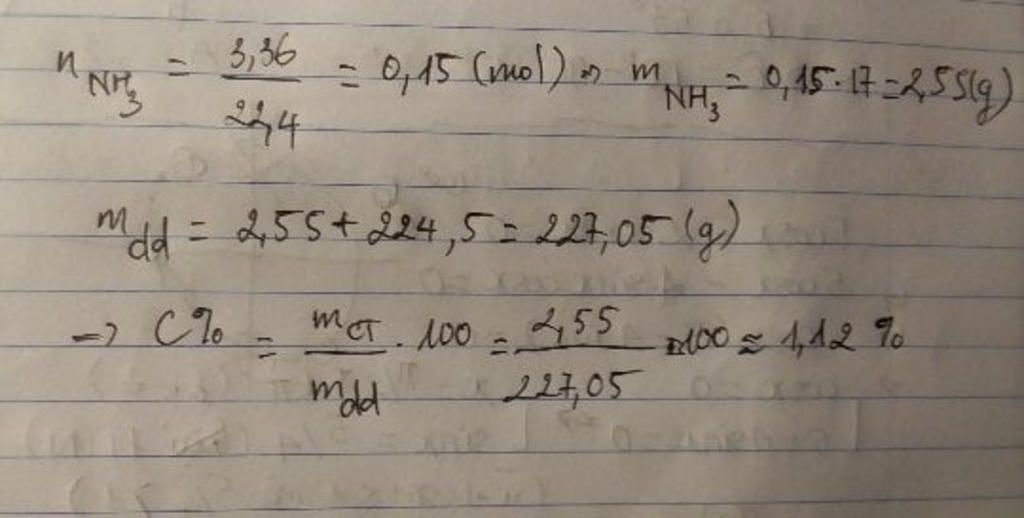 n NH3 = 3,36 / 22,4 = 0,15 (mol) => m NH3 = 0,15 . 17 = 2,55 (g)
m dd = 2,55 + 224,5 = 227,05 (g)
=> C% = m CT / m dd . 100 = 2,55 / 227,05 . 100 ≈ 1,12 %